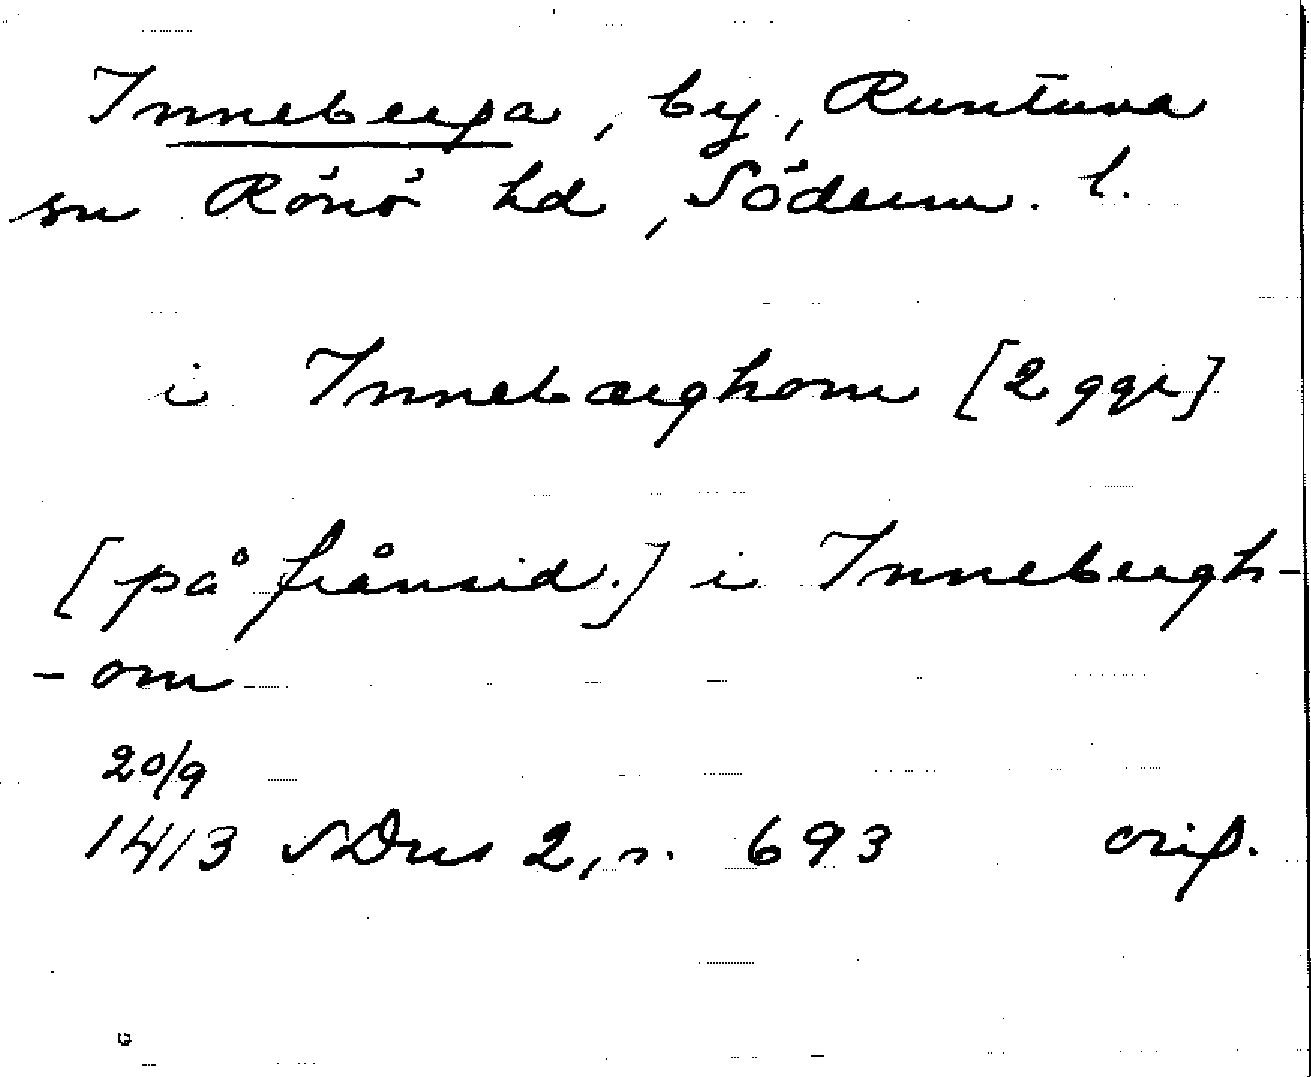 Inneberga, by, Runtuna
sn Rönö hd, Söderm. l.
i Innebærghom [2 ggr]
[på frånsid.] i Innebergh-
-om
20/9
1413 SDns 2, s. 693 orig.